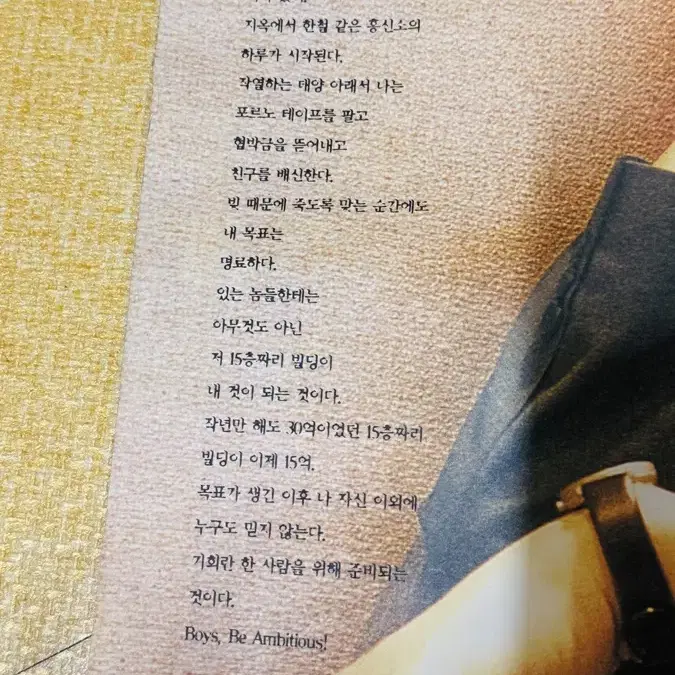 지옥에서 한철 같은 흥신소의
하루가 시작된다.
작열하는 태양 아래서 나는
포르노 테이프를 팔고
협박금을 뜯어내고
친구를 배신한다.
빚 때문에 죽도록 맞는 순간에도
내 목표는
명료하다.
있는 놈들한테는
아무것도 아닌
저 15층짜리 빌딩이
내 것이 되는 것이다.
작년만 해도 30억이었던 15층짜리
빌딩이 이제 15억.
목표가 생긴 이후 나 자신 이외에
누구도 믿지 않는다.
기회란 한 사람을 위해 준비되는
것이다.
Boys, Be Ambitious!